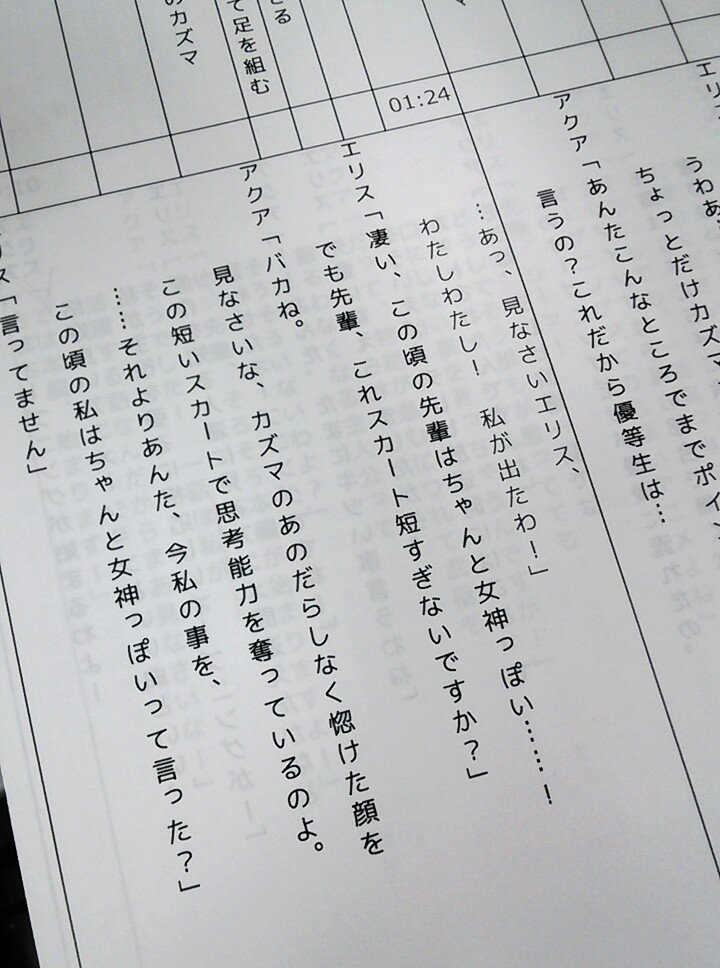 さる
て足を組む
のカズマ
01:24
エリス
うわあ…
ちょっとだけカズマ
アクア「あんたこんなところでまでポイン
言うの?これだから優等生は…
…あっ、見なさいエリス、
わたしわたし! 私が出たわ!」
エリス「凄い、この頃の先輩はちゃんと女神っぽい……!
でも先輩、これスカート短すぎないですか?」
アクア「バカね。
見なさいな、カズマのあのだらしなく惚けた顔を
この短いスカートで思考能力を奪っているのよ。
……それよりあんた、今私の事を、
この頃の私はちゃんと女神っぽいって言った?」
リス「言ってません」